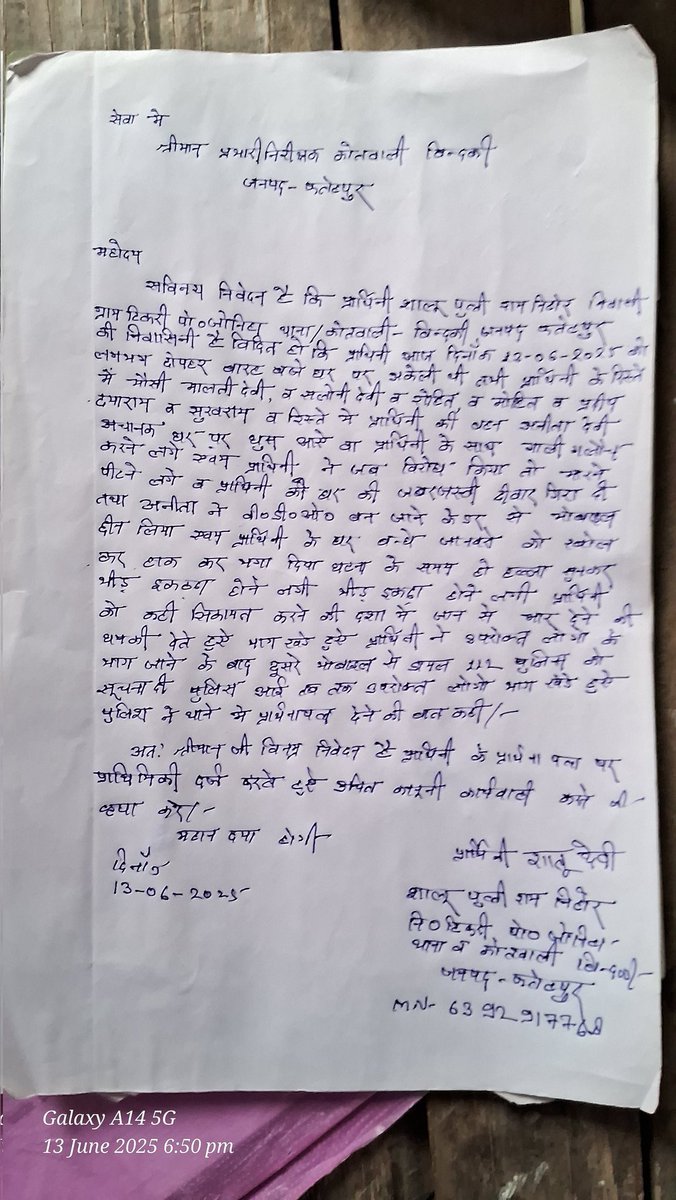 सेवा मे
श्रीमान प्रभारी निरीक्षक कोतवाली बिन्दकी
जनपद - फतेहपुर
महोदय
सविनय निवेदन है कि प्रार्थिनी शालू पुत्री राम निहोर निवासी
ग्राम टिकरी पो० जोनिहा थाना/कोतवाली - बिन्दकी जनपद फतेहपुर
की निवासिनी है विदित हो कि प्रार्थिनी आज दिनाँक 12-06-2025 को
लगभग दोपहर बारह बजे घर पर अकेली थी तभी प्रार्थिनी के रिस्ते
में मौसी मालती देवी, व सलोनी देवी व रोहित व मोहित व प्रदीप
दयाराम व सुखराम व रिस्ते मे प्रार्थिनी की बहन अनीता देवी
अचानक घर पर घुस आये वा प्रार्थिनी के साथ गाली गलौज
करने लगे एवम प्रार्थिनी ने जब विरोध किया तो मारने
पीटने लगे व प्रार्थिनी की घर की जबरजस्ती दीवार गिरा दी
तथा अनीता ने वी०डी०ओ० बन जाने के डर से मोबाइल
छीन लिया एवम प्रार्थिनी के घर बन्धे जानवरो को खोल
कर हाक कर भगा दिया घटना के समय हो हल्ला सुनकर
भीड़ इकठ्ठा होने लगी भीड़ इकठा होने लगी प्रार्थिनी
को कही सिकायत करने की दशा में जान से मार देने की
धमकी देते हुऐ भाग खडे हुऐ प्रार्थिनी ने उपरोक्त लोगो के
भाग जाने के बाद दूसरे मोबाइल से डायल 112 पुलिस को
सूचना दी पुलिस आई तब तक उपरोक्त लोगो भाग खडे हुऐ
पुलिस ने थाने मे प्रार्थनापत्र देने की बात कही/-
अतः श्रीमान जी विनम्र निवेदन है प्रार्थिनी के प्रार्थना पत्र पर
प्राथिमिकी दर्ज करते हुऐ उचित कानूनी कार्यवाही करने की
कृपा करे/-
महान दया होगी
दिनाँक
13-06-2025
प्रार्थिनी शालू देवी
शालू पुत्री राम निहोर
नि० टिकरी पो० जोनिहा
थाना व कोतवाली बिन्दकी/-
जनपद - फतेहपुर
MN- 63929177
Galaxy A14 5G
13 June 2025 6:50 pm